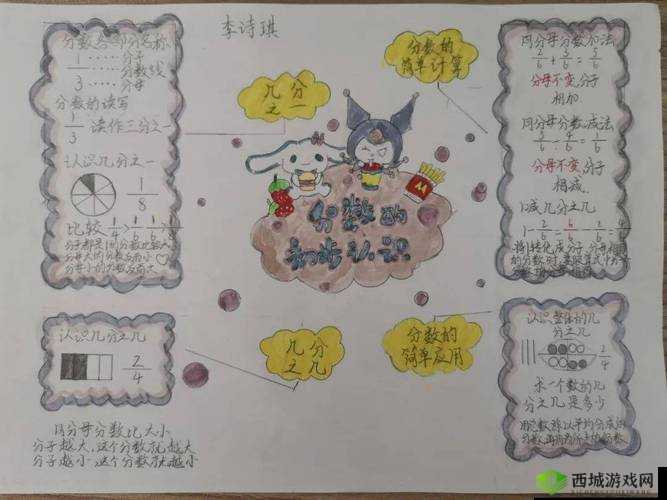 李诗琪
分数各部分名称
1……分子
……分数线
3……分母
分数的读写
1/3 读作三分之一
认识几分之一
1/8
比较 1/4 1/6 1/6
分子都是1的分数比较大
分母大的分数反而小
分母小的分数反而大
认识几分之几
2/4
同分母分数比大小
分子越大,这个分数就越大
分子越小,这个分数就越小
几分
之一
分数的
简单计算
M
分数的
初步认识
几分
之几
分数的
简单应用
同分母分数加法
2/6 + 3/6 = 5/6
分母不变,分子
相加
同分母分数减法
分母不变,分子
相减.
1减几分之几
1-2/6=6/6-2/6=4/6
认识整体的几
分之几
2/4
求一个数的几
分之几是多少
西城游戏网